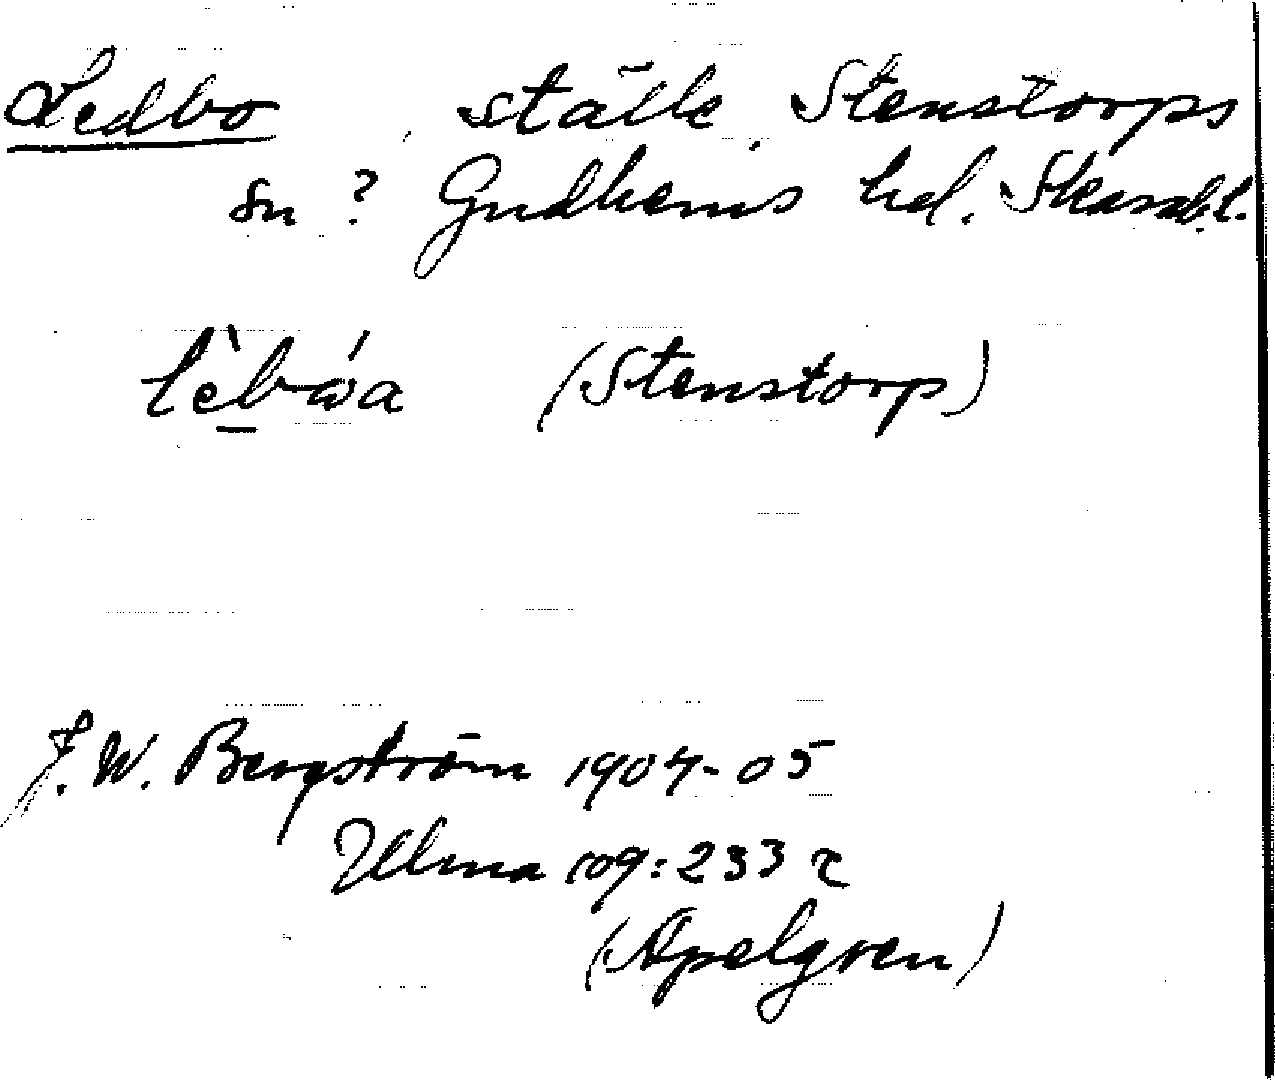 Ledbo ställe Stenstorps
sn? Gudhems hd. Skarab. l.
(Stenstorp)
J. W. Bergström 1904-05
Ulma 109:233 r
(Apelgren)